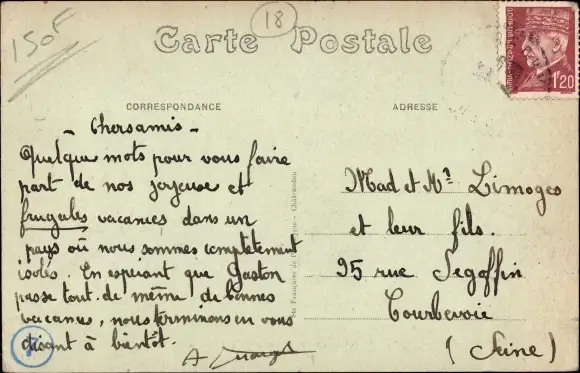 150F
18
Carte Postale
CORRESPONDANCE
ADRESSE
1.20
- Chersamis -
Quelque mots pour vous faire
part de nos joyeuse et
frugales vacances dans un
pays où nous sommes completement
isolés. En espérant que Gaston
passe tout de même de bonnes
vacances, nous terminons en vous
disant à bientôt.
A
Mad et Mr Limoges
et leur fils.
95 rue Segoffin
Courbevoie
(Seine)